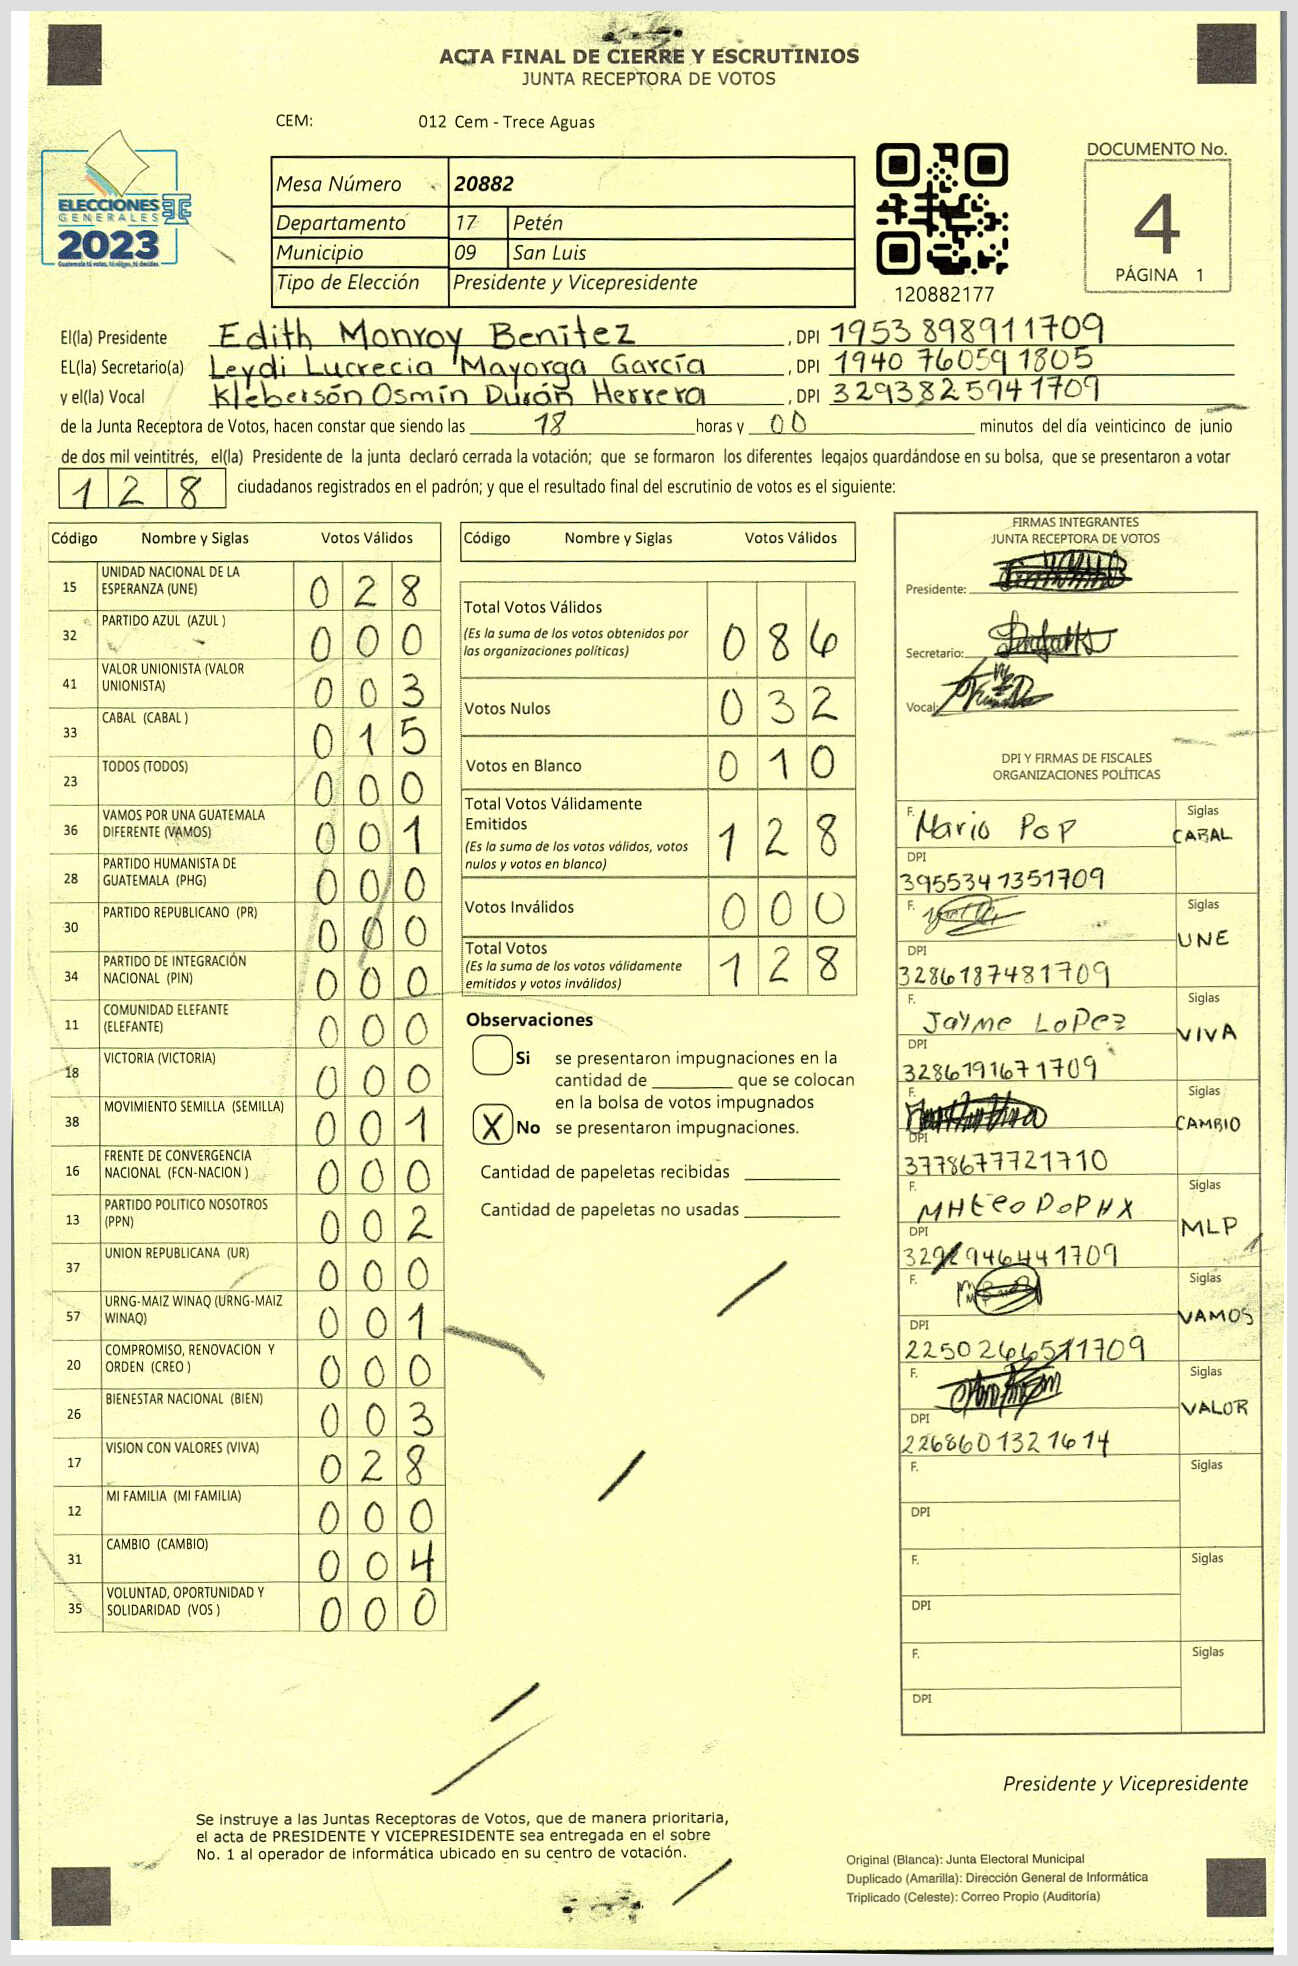 ACTA FINAL DE CIERRE Y ESCRUTINIOS
JUNTA RECEPTORA DE VOTOS
CEM: 012 Cem - Trece Aguas
ELECCIONES
GENERALES
2023
Guatemala tú votas, tú eliges, tú decides
Mesa Número 20882
Departamento 17 Petén
Municipio 09 San Luis
Tipo de Elección Presidente y Vicepresidente
120882177
DOCUMENTO No.
4
PÁGINA 1
El(la) Presidente Edith Monroy Benítez , DPI 1953898911709
EL(la) Secretario(a) Leydi Lucrecia Mayorga García , DPI 1940 76059 1805
y el(la) Vocal Klebersón Osmín Durán Herrera , DPI 3293825941709
de la Junta Receptora de Votos, hacen constar que siendo las 18 horas y 00 minutos del día veinticinco de junio
de dos mil veintitrés, el(la) Presidente de la junta declaró cerrada la votación; que se formaron los diferentes legajos guardándose en su bolsa, que se presentaron a votar
128 ciudadanos registrados en el padrón; y que el resultado final del escrutinio de votos es el siguiente:
Código Nombre y Siglas Votos Válidos
15 UNIDAD NACIONAL DE LA ESPERANZA (UNE) 028
32 PARTIDO AZUL (AZUL ) 000
41 VALOR UNIONISTA (VALOR UNIONISTA) 003
33 CABAL (CABAL ) 015
23 TODOS (TODOS) 000
36 VAMOS POR UNA GUATEMALA DIFERENTE (VAMOS) 001
28 PARTIDO HUMANISTA DE GUATEMALA (PHG) 000
30 PARTIDO REPUBLICANO (PR) 000
34 PARTIDO DE INTEGRACIÓN NACIONAL (PIN) 000
11 COMUNIDAD ELEFANTE (ELEFANTE) 000
18 VICTORIA (VICTORIA) 000
38 MOVIMIENTO SEMILLA (SEMILLA) 001
16 FRENTE DE CONVERGENCIA NACIONAL (FCN-NACION ) 000
13 PARTIDO POLITICO NOSOTROS (PPN) 002
37 UNION REPUBLICANA (UR) 000
57 URNG-MAIZ WINAQ (URNG-MAIZ WINAQ) 001
20 COMPROMISO, RENOVACION Y ORDEN (CREO ) 000
26 BIENESTAR NACIONAL (BIEN) 003
17 VISION CON VALORES (VIVA) 028
12 MI FAMILIA (MI FAMILIA) 000
31 CAMBIO (CAMBIO) 004
35 VOLUNTAD, OPORTUNIDAD Y SOLIDARIDAD (VOS ) 000
Código Nombre y Siglas Votos Válidos
Total Votos Válidos 086
(Es la suma de los votos obtenidos por
las organizaciones políticas)
Votos Nulos 032
Votos en Blanco 010
Total Votos Válidamente
Emitidos 128
(Es la suma de los votos válidos, votos
nulos y votos en blanco)
Votos Inválidos 000
Total Votos 128
(Es la suma de los votos válidamente
emitidos y votos inválidos)
Observaciones
Si se presentaron impugnaciones en la
cantidad de ________ que se colocan
en la bolsa de votos impugnados
X No se presentaron impugnaciones.
Cantidad de papeletas recibidas
Cantidad de papeletas no usadas
FIRMAS INTEGRANTES
JUNTA RECEPTORA DE VOTOS
Presidente:
Secretario:
Vocal:
DPI Y FIRMAS DE FISCALES
ORGANIZACIONES POLÍTICAS
F. Mario Pop Siglas CABAL
DPI 3955341351709
F. Siglas UNE
DPI 3286187481709
F. Jayme Lopez Siglas VIVA
DPI 3286191671709
F. Siglas CAMBIO
DPI 3778677721710
F. Siglas MLP
DPI
F. Siglas VAMOS
DPI 2250266511709
F. Siglas VALOR
DPI 2268601321614
F. Siglas
DPI
F. Siglas
DPI
F. Siglas
DPI
Presidente y Vicepresidente
Se instruye a las Juntas Receptoras de Votos, que de manera prioritaria,
el acta de PRESIDENTE Y VICEPRESIDENTE sea entregada en el sobre
No. 1 al operador de informática ubicado en su centro de votación.
Original (Blanca): Junta Electoral Municipal
Duplicado (Amarilla): Dirección General de Informática
Triplicado (Celeste): Correo Propio (Auditoría)